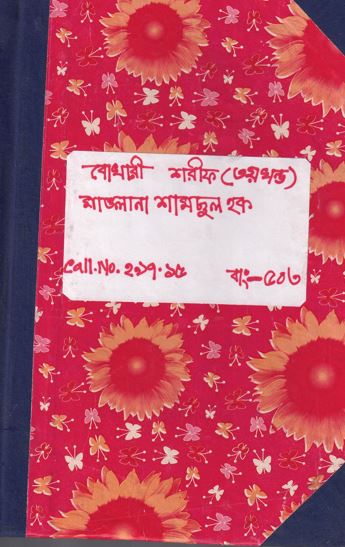 বোখারী শরীফ (৩য় খন্ড)
মাওলানা শামছুল হক
Call.No. ২৯৭.১৫
বাং-৫০৩